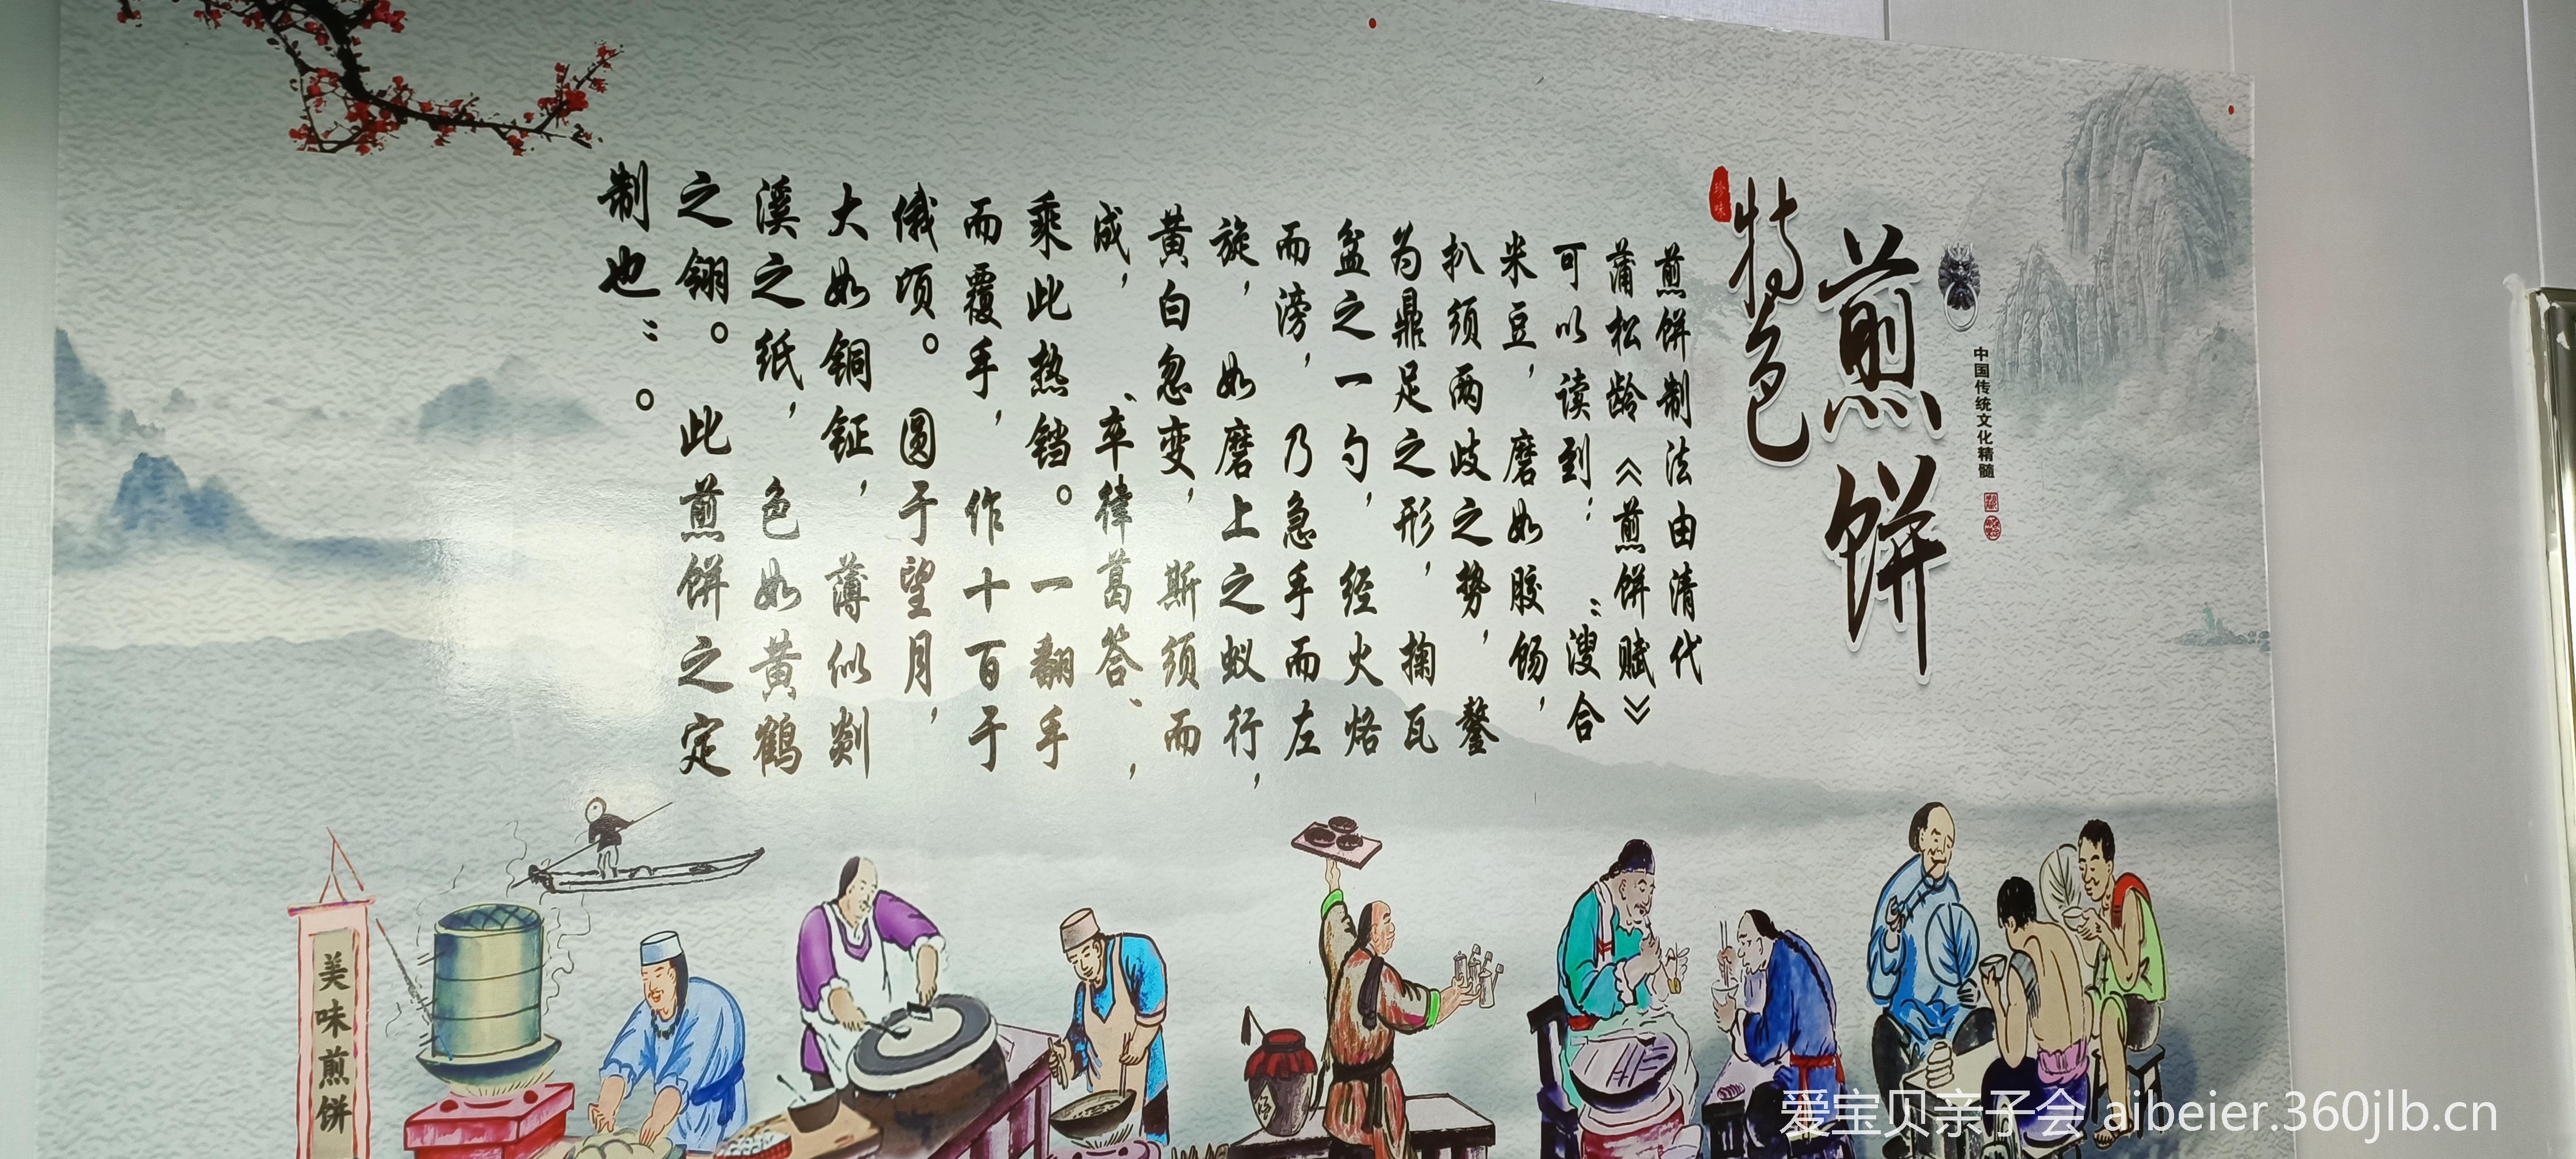 中国传统文化精髓
煎饼
特色
珍味
煎饼制法由清代
蒲松龄《煎饼赋》
可以读到：“溲合
米豆，磨如胶饧，
扒须两歧之势，鏊
为鼎足之形，掬瓦
盆之一勺，经火烙
而滂，乃急手而左
旋，如磨上之蚁行，
黄白忽变，斯须而
成，‘卒律葛答’，
乘此热铛。一翻手
而覆手，作十百于
俄顷。圆于望月，
大如铜钲，薄似剡
溪之纸，色如黄鹤
之翎。此煎饼之定
制也”。
美味煎饼
爱宝贝亲子会 aibeier.360jlb.cn